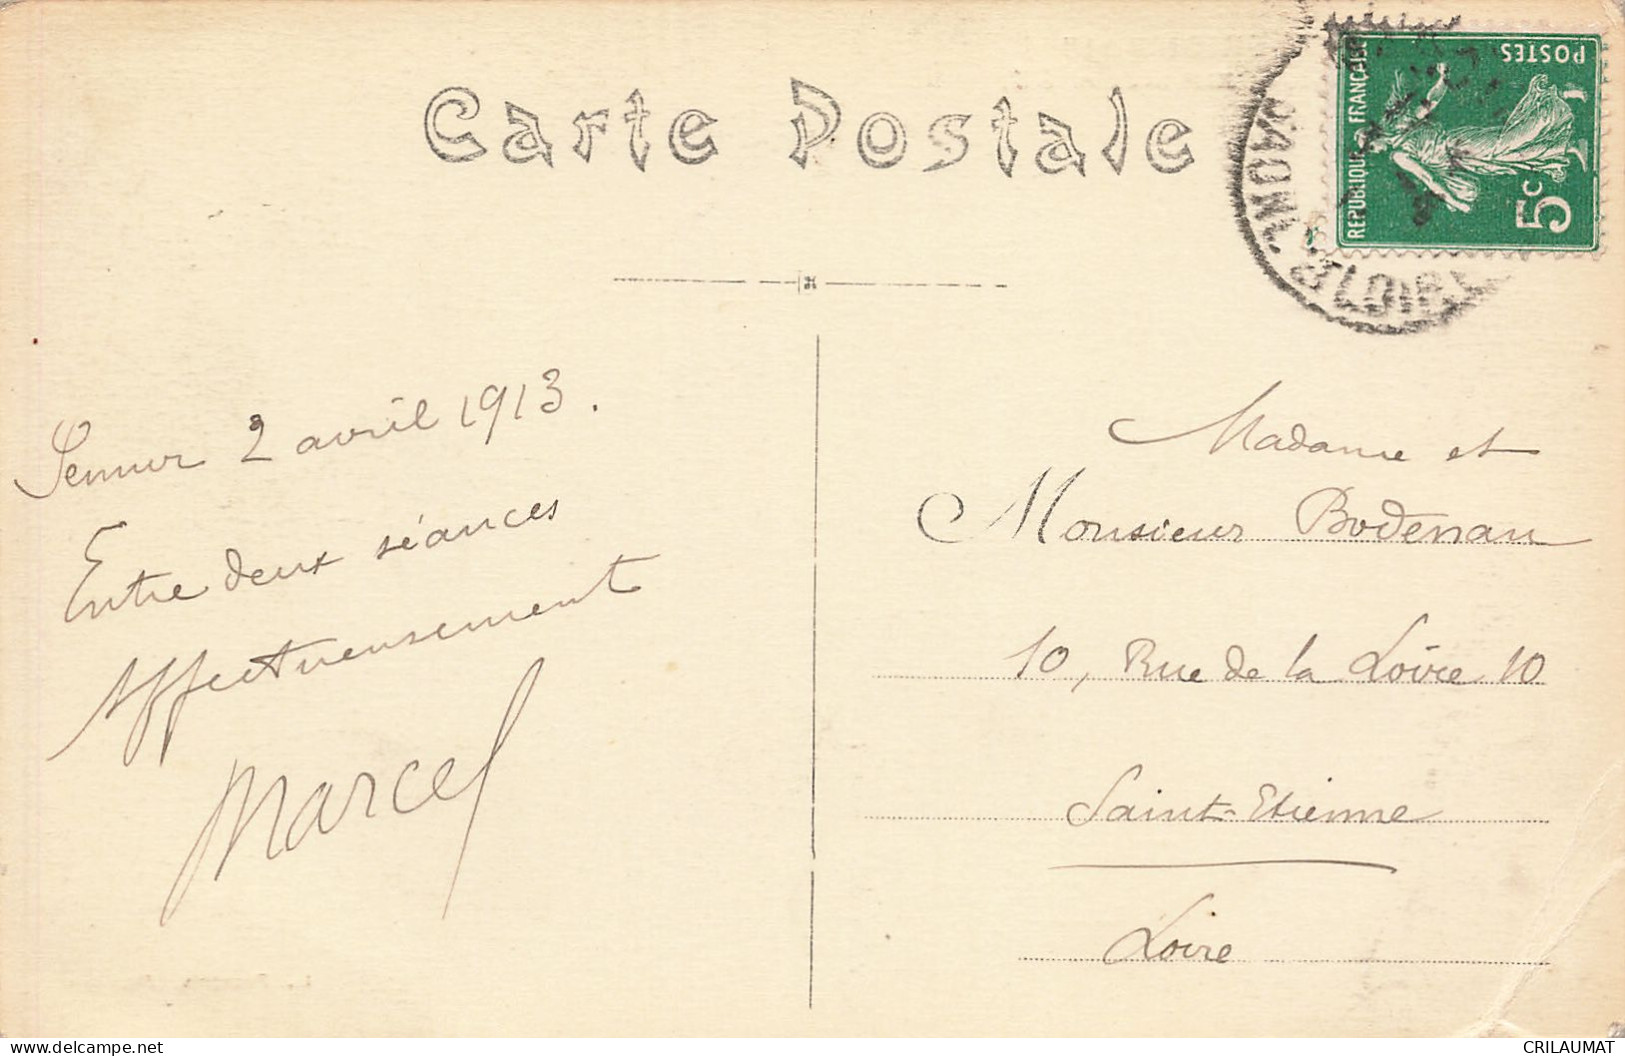 Carte Postale
POSTES
REPUBLIQUE FRANÇAISE
5c
SAONE
ET LOIRE
Semur 2 avril 1913.
Entre deux séances
Affectueusement
Marcel
Madame et
Monsieur Bodenan
10, Rue de la Loire 10
Saint-Etienne
Loire
CRILAUMAT